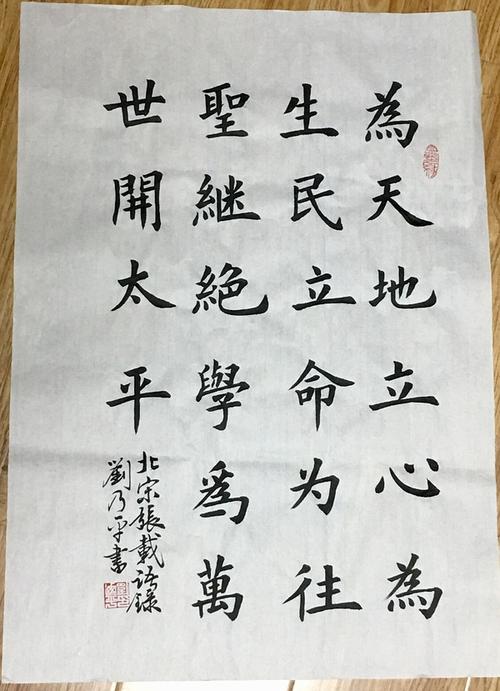 為天地立心為
生民立命为往
聖継絶學爲萬
世開太平
北宋張載语録
劉乃平書